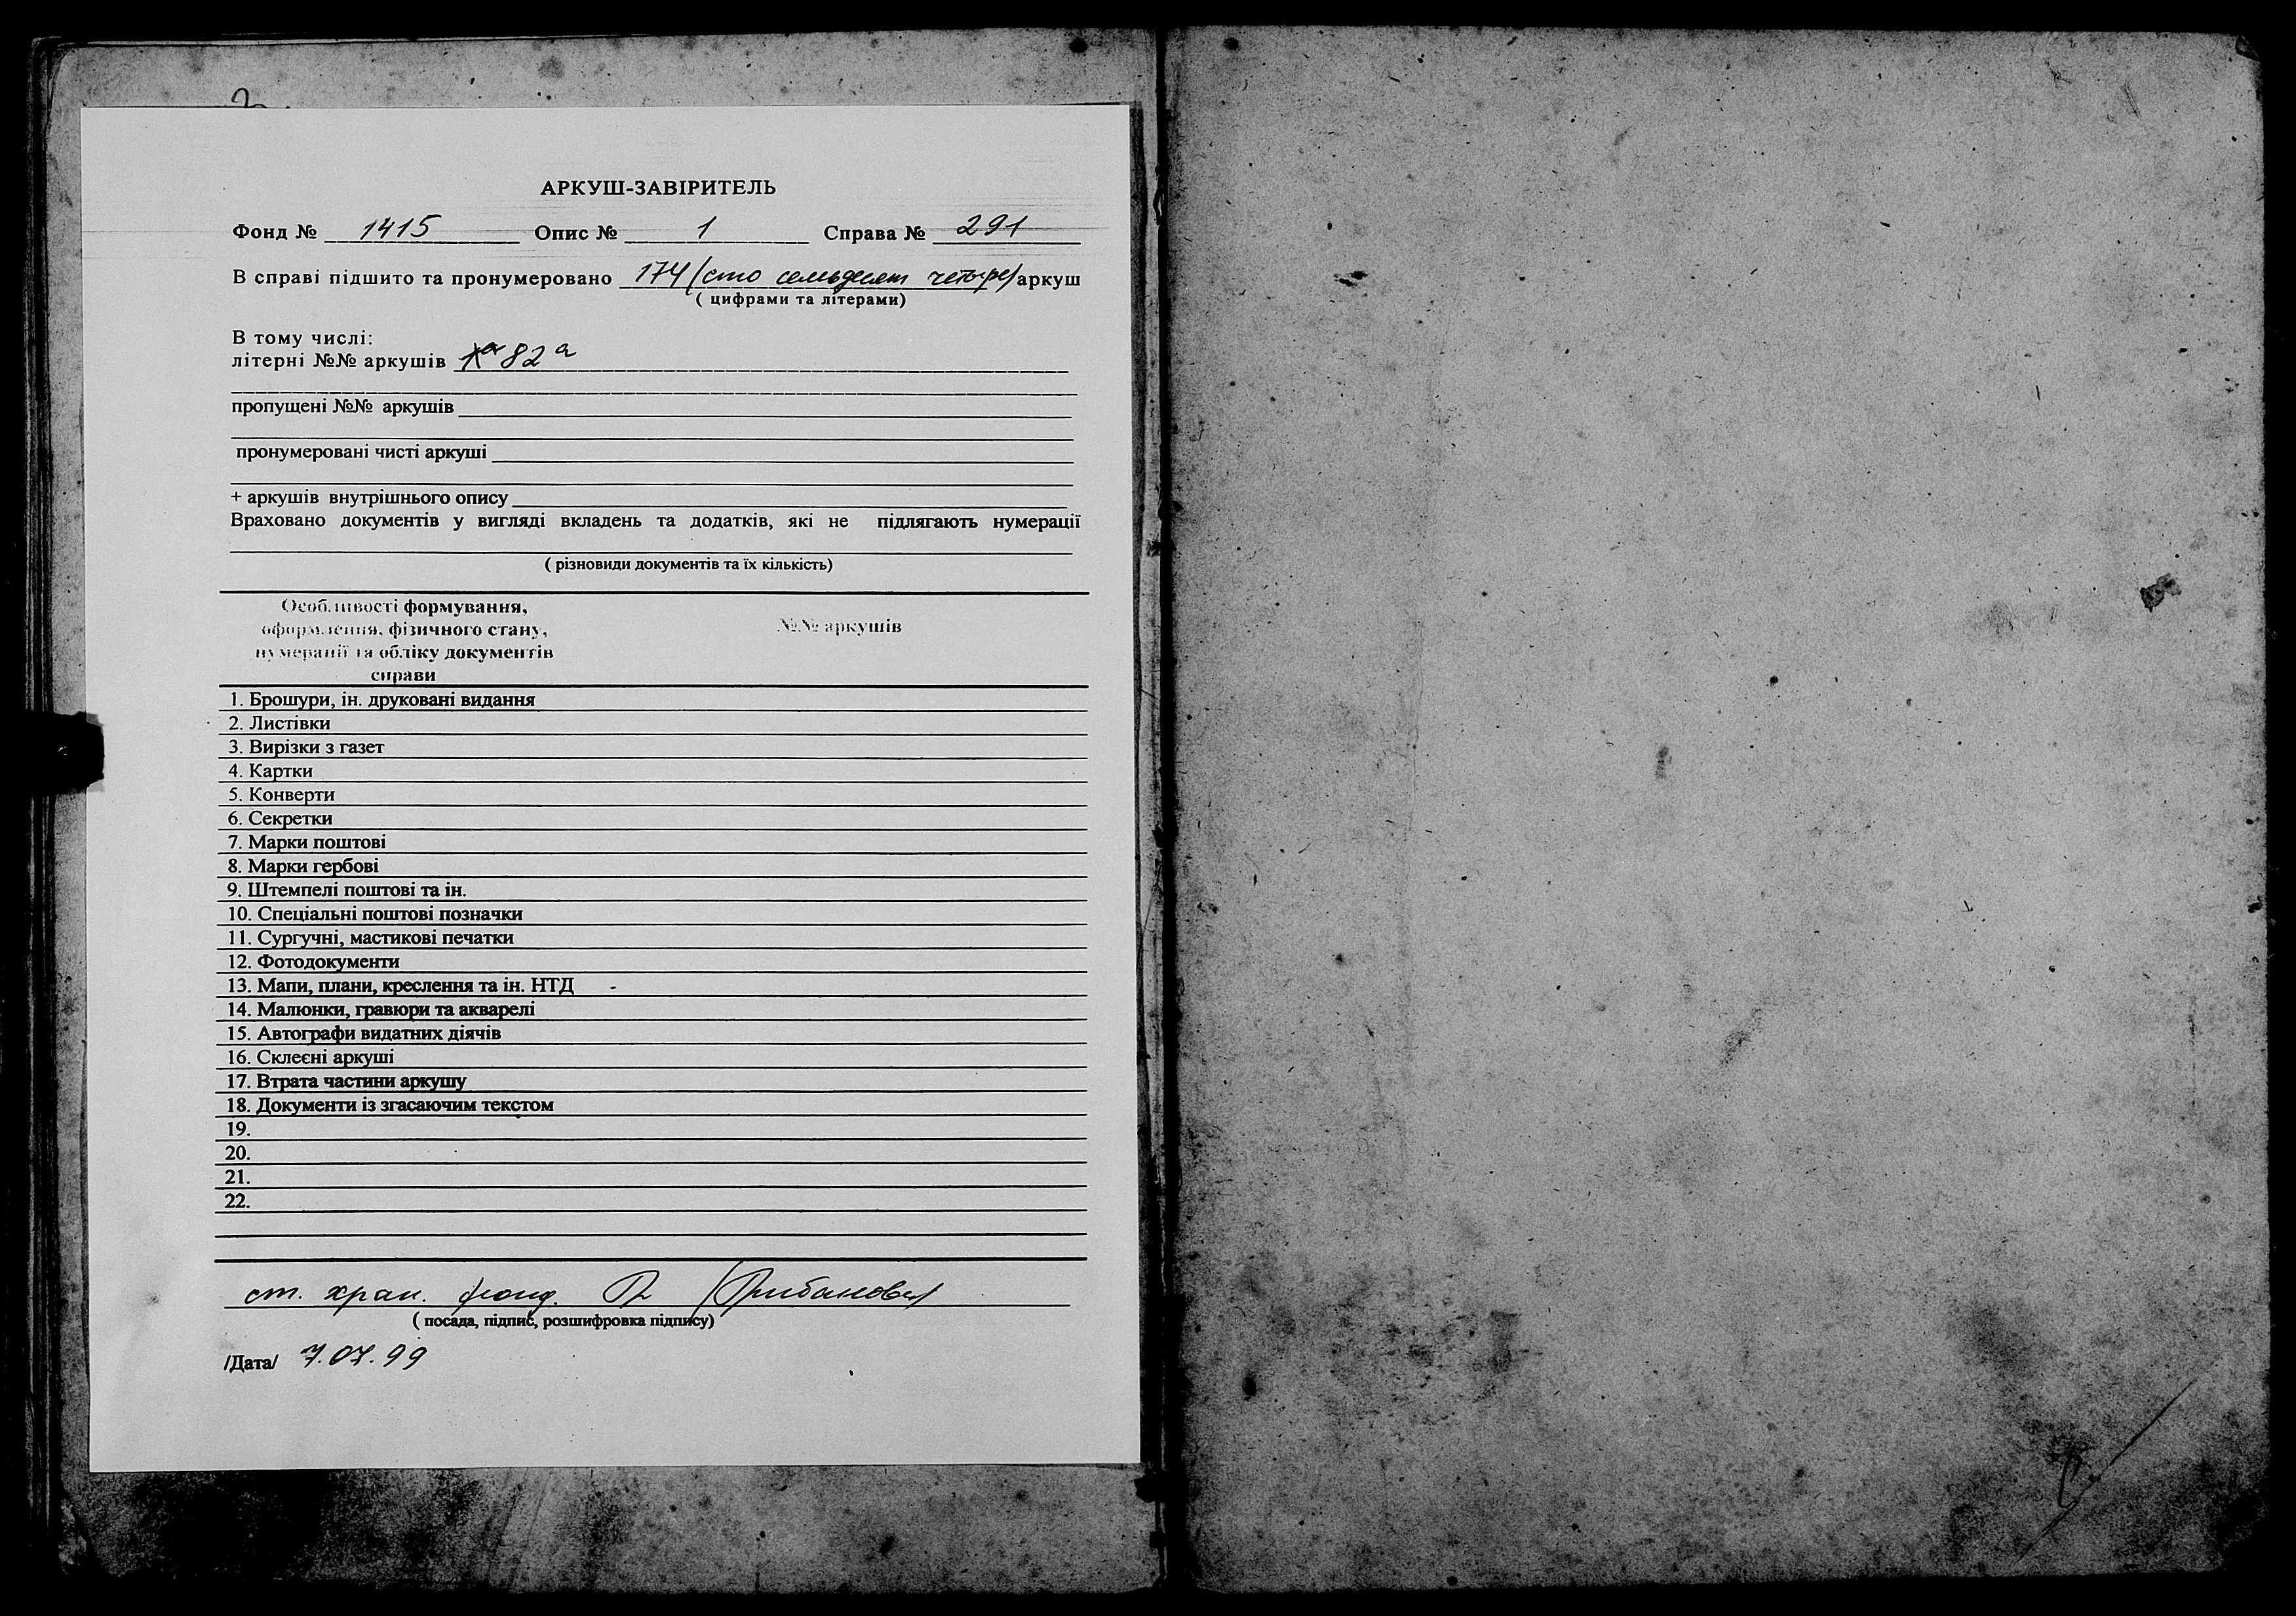 АРКУШ-ЗАВІРИТЕЛЬ
Фонд № 1415 Опис № 1 Справа № 291
В справі підшито та пронумеровано 174 (сто семьдесят четыре) аркуш
( цифрами та літерами)
В тому числі:
літерні №№ аркушів 82а
пропущені №№ аркушів
пронумеровані чисті аркуші
+ аркушів внутрішнього опису
Враховано документів у вигляді вкладень та додатків, які не підлягають нумерації
( різновиди документів та їх кількість)
Особливості формування,
оформлення, фізичного стану, №№ аркушів
нумерації та обліку документів
справи
1. Брошури, ін. друковані видання
2. Листівки
3. Вирізки з газет
4. Картки
5. Конверти
6. Секретки
7. Марки поштові
8. Марки гербові
9. Штемпелі поштові та ін.
10. Спеціальні поштові позначки
11. Сургучні, мастикові печатки
12. Фотодокументи
13. Мапи, плани, креслення та ін. НТД -
14. Малюнки, гравюри та акварелі
15. Автографи видатних діячів
16. Склеєні аркуші
17. Втрата частини аркушу
18. Документи із згасаючим текстом
19.
20.
21.
22.
ст. хран. фонд.
( посада, підпис, розшифровка підпису)
/Дата/ 7.07.99